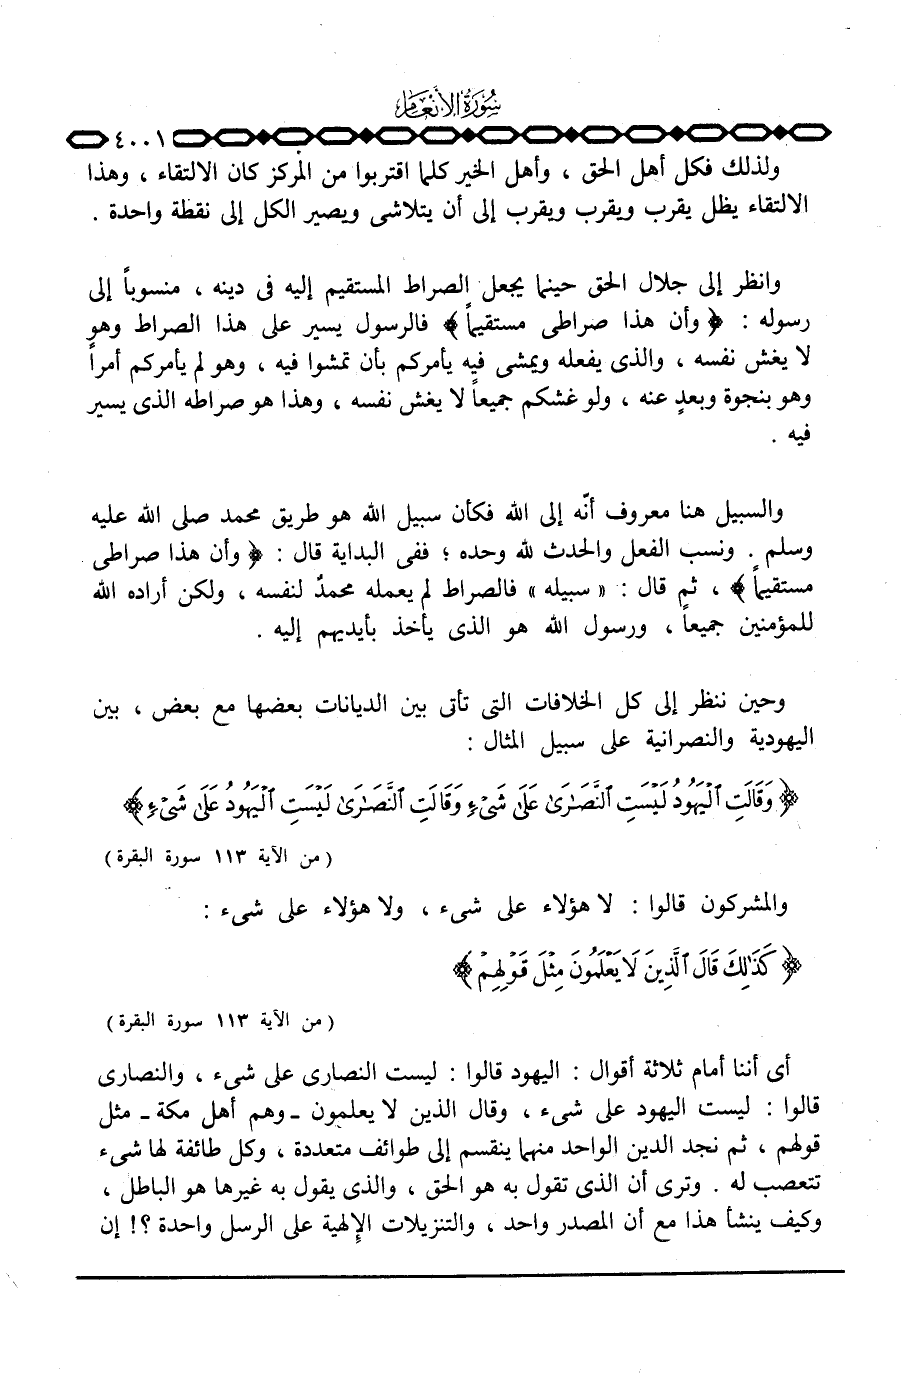 سورة الأنعام
٤٠٠١
ولذلك فكل أهل الحق ، وأهل الخير كلما اقتربوا من المركز كان الالتقاء ، وهذا
الالتقاء يظل يقرب ويقرب ويقرب إلى أن يتلاشى ويصير الكل إلى نقطة واحدة .
وانظر إلى جلال الحق حينما يجعل الصراط المستقيم إليه فى دينه ، منسوباً إلى
رسوله : ﴿ وأن هذا صراطى مستقيماً ﴾ فالرسول يسير على هذا الصراط وهو
لا يغش نفسه ، والذى يفعله ويمشى فيه يأمركم بأن تمشوا فيه ، وهو لم يأمركم أمراً
وهو بنجوة وبعدٍ عنه ، ولو غشكم جميعاً لا يغش نفسه ، وهذا هو صراطه الذى يسير
فيه .
والسبيل هنا معروف أنّه إلى الله فكأن سبيل الله هو طريق محمد صلى الله عليه
وسلم . ونسب الفعل والحدث لله وحده ؛ ففى البداية قال : ﴿ وأن هذا صراطى
مستقيماً ﴾ ، ثم قال : « سبيله » فالصراط لم يعمله محمدٌ لنفسه ، ولكن أراده الله
للمؤمنين جميعاً ، ورسول الله هو الذى يأخذ بأيديهم إليه .
وحين ننظر إلى كل الخلافات التى تأتى بين الديانات بعضها مع بعض ، بين
اليهودية والنصرانية على سبيل المثال :
﴿ وَقَالَتِ ٱلْيَهُودُ لَيْسَتِ ٱلنَّصَـٰرَىٰ عَلَىٰ شَىْءٍ وَقَالَتِ ٱلنَّصَـٰرَىٰ لَيْسَتِ ٱلْيَهُودُ عَلَىٰ شَىْءٍ ﴾
( من الآية ١١٣ سورة البقرة )
والمشركون قالوا : لا هؤلاء على شىء ، ولا هؤلاء على شىء :
﴿ كَذَٰلِكَ قَالَ ٱلَّذِينَ لَا يَعْلَمُونَ مِثْلَ قَوْلِهِمْ ﴾
( من الآية ١١٣ سورة البقرة )
أى أننا أمام ثلاثة أقوال : اليهود قالوا : ليست النصارى على شىء ، والنصارى
قالوا : ليست اليهود على شىء ، وقال الذين لا يعلمون ـ وهم أهل مكة ـ مثل
قولهم ، ثم نجد الدين الواحد منهما ينقسم إلى طوائف متعددة ، وكل طائفة لها شىء
تتعصب له . وترى أن الذى تقول به هو الحق ، والذى يقول به غيرها هو الباطل ،
وكيف ينشأ هذا مع أن المصدر واحد ، والتنزيلات الإلهية على الرسل واحدة ؟! إن